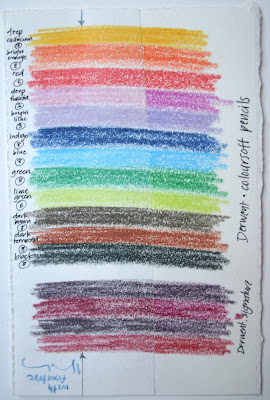 deep
cadmium
bright
orange
red
deep
fuchsia
bright
lilac
indigo
blue
green
lime
green
dark
brown
dark
terracotta
black
Derwent · coloursoft pencils
Derwent signature
with
fixative